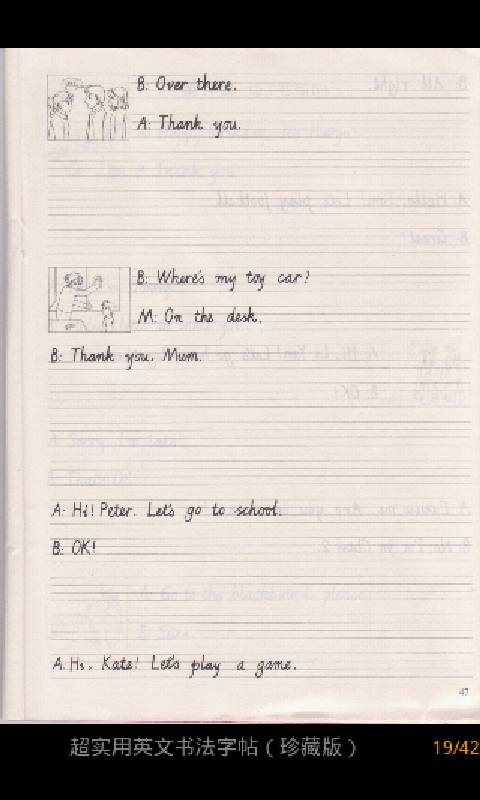 B: Over there.
A: Thank you.
B: Where's my toy car?
M: On the desk.
B: Thank you, Mum.
A: Hi! Peter. Let's go to school.
B: OK!
A: Hi, Kate! Let's play a game.
47
超实用英文书法字帖（珍藏版）
19/42